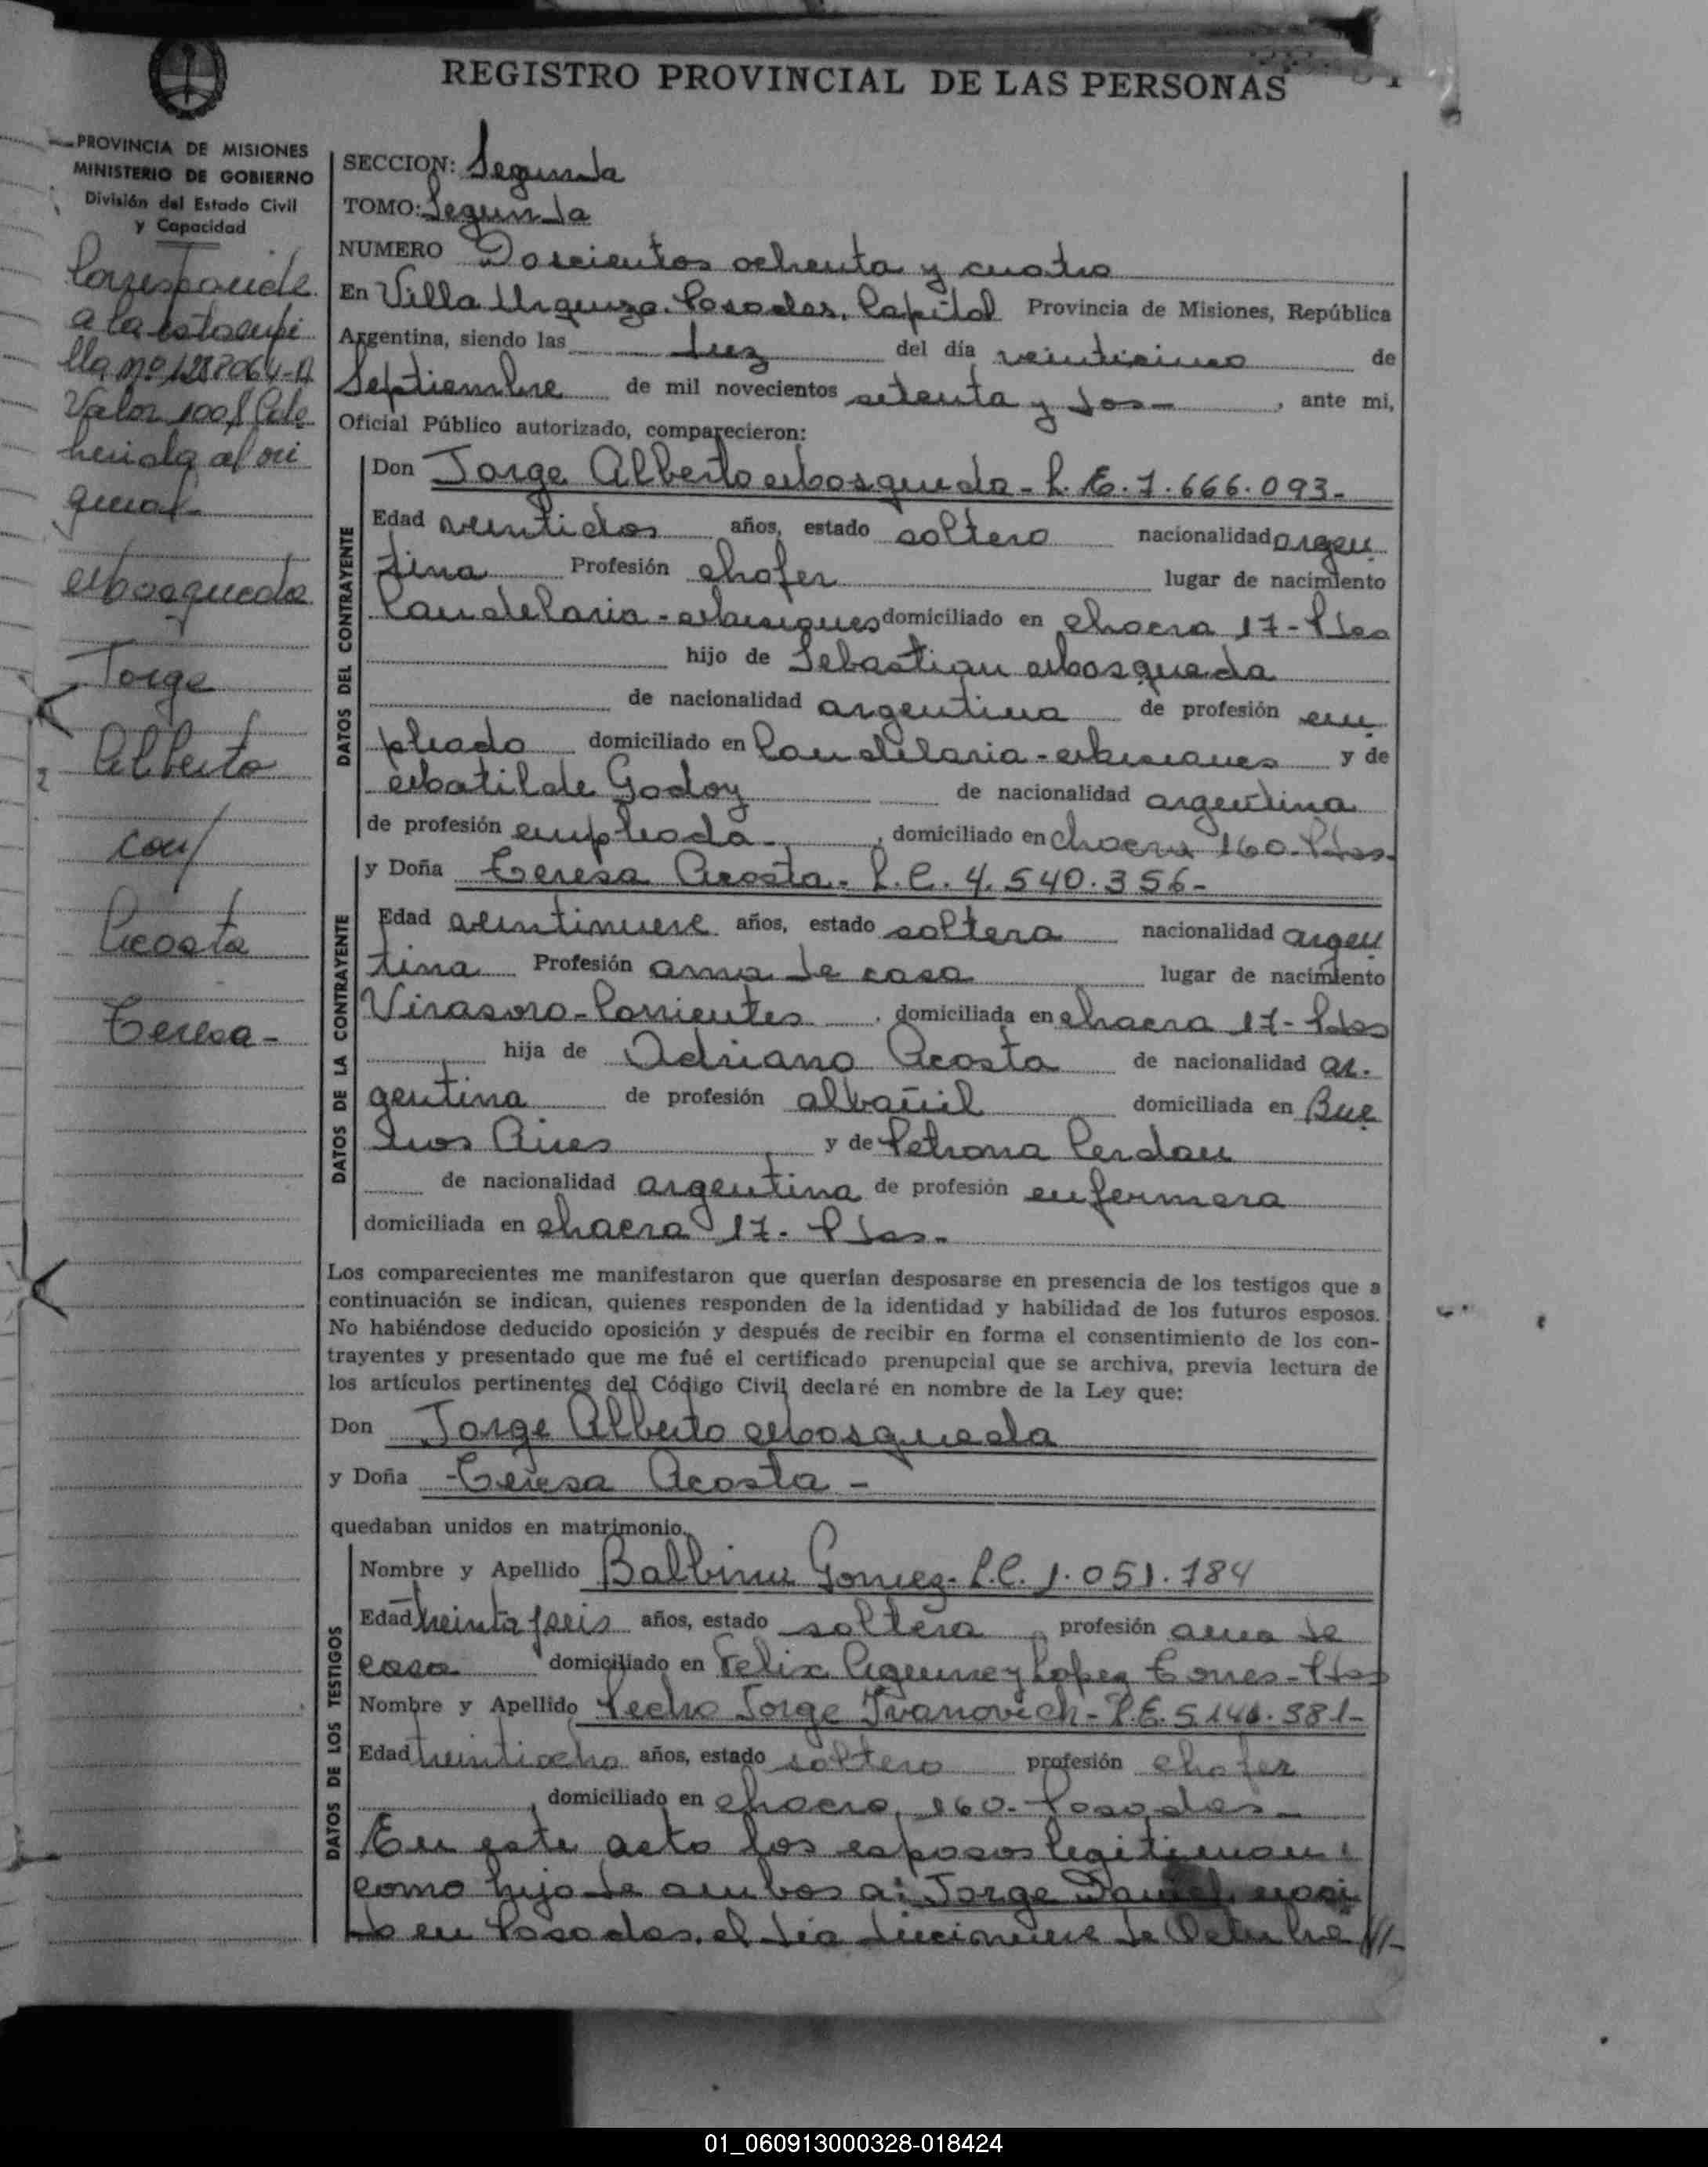 REGISTRO PROVINCIAL DE LAS PERSONAS
PROVINCIA DE MISIONES
MINISTERIO DE GOBIERNO
División del Estado Civil
y Capacidad
Corresponde
a la estampi
lla nº 1287064-A
Valor 100$ l ade
herida al ori
ginal
Mosqueda
Jorge
Alberto
con/
Acosta
Teresa-
SECCION: Segunda
TOMO: Segunda
NUMERO Doscientos ochenta y cuatro
En Villa Urquiza. Posadas, Capital Provincia de Misiones, República
Argentina, siendo las diez del día veinticinco de
Septiembre de mil novecientos setenta y dos- , ante mi,
Oficial Público autorizado, comparecieron:
DATOS DEL CONTRAYENTE
Don Jorge Alberto Mosqueda - L.E. 7.666.093-
Edad veintidos años, estado soltero nacionalidad argen
tina Profesión chofer lugar de nacimiento
Candelaria - Misiones domiciliado en chacra 17- Pdas
hijo de Sebastian Mosqueda
de nacionalidad argentina de profesión em
pleado domiciliado en Candelaria - Misiones y de
Matilde Godoy de nacionalidad argentina
de profesión empleada- , domiciliado en chacra 160. Pdas.
DATOS DE LA CONTRAYENTE
y Doña Teresa Acosta- L.C. 4.540.356-
Edad veintinueve años, estado soltera nacionalidad argen
tina Profesión ama de casa lugar de nacimiento
Virasoro - Corrientes , domiciliada en chacra 17- Pdas
hija de Adriano Acosta de nacionalidad ar.
gentina de profesión albañil domiciliada en Bue
nos Aires y de Petrona Cerdan
de nacionalidad argentina de profesión enfermera
domiciliada en chacra 17. Pdas-
Los comparecientes me manifestaron que querían desposarse en presencia de los testigos que a
continuación se indican, quienes responden de la identidad y habilidad de los futuros esposos.
No habiéndose deducido oposición y después de recibir en forma el consentimiento de los con-
trayentes y presentado que me fué el certificado prenupcial que se archiva, previa lectura de
los artículos pertinentes del Código Civil declaré en nombre de la Ley que:
Don Jorge Alberto Mosqueda
y Doña -Teresa Acosta-
quedaban unidos en matrimonio.
DATOS DE LOS TESTIGOS
Nombre y Apellido Balbina Gomez- L.C. 1.051.784
Edad treinta y seis años, estado soltera , profesión ama de
casa domiciliado en Felix Aguirre y Lopez Torres - Pdas
Nombre y Apellido Pedro Jorge Ivanovich- L.E. 5.141.881-
Edad treintiocho años, estado soltero profesión chofer
, domiciliado en chacra 160- Posadas-
En este acto los esposos legitiman
como hijo de ambos a: Jorge Daniel naci
do en Posadas, el dia diecinueve de Octubre ///-
01_060913000328-018424